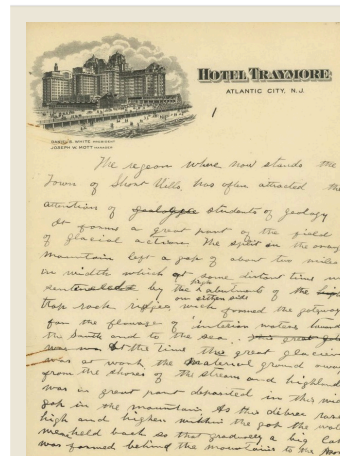 HOTEL TRAYMORE
ATLANTIC CITY, N.J.
DANIEL S. WHITE PRESIDENT
JOSEPH W. MOTT MANAGER
1
The regeon where now stands the
Town of Short Hills, has often attracted the
attentions of students of geology
It forms a great part of the field
of glacial actions. The split in the orang
mountain left a gap of about two miles
in width which at some distant time w
by the high abutments of the
on either side
trap rock ridges, wich formed the gateway
for the flowage of interior waters toward
the South and to the sea.
At the time this great glacier
was at work, the material ground away
from the shores of the stream and highland
was in great part deposited in this wide
gap in the mountain. As this debree rose
high and higher within the gap the wat
held back so that gradualy a big lak
was formed behind the mountains to the nor